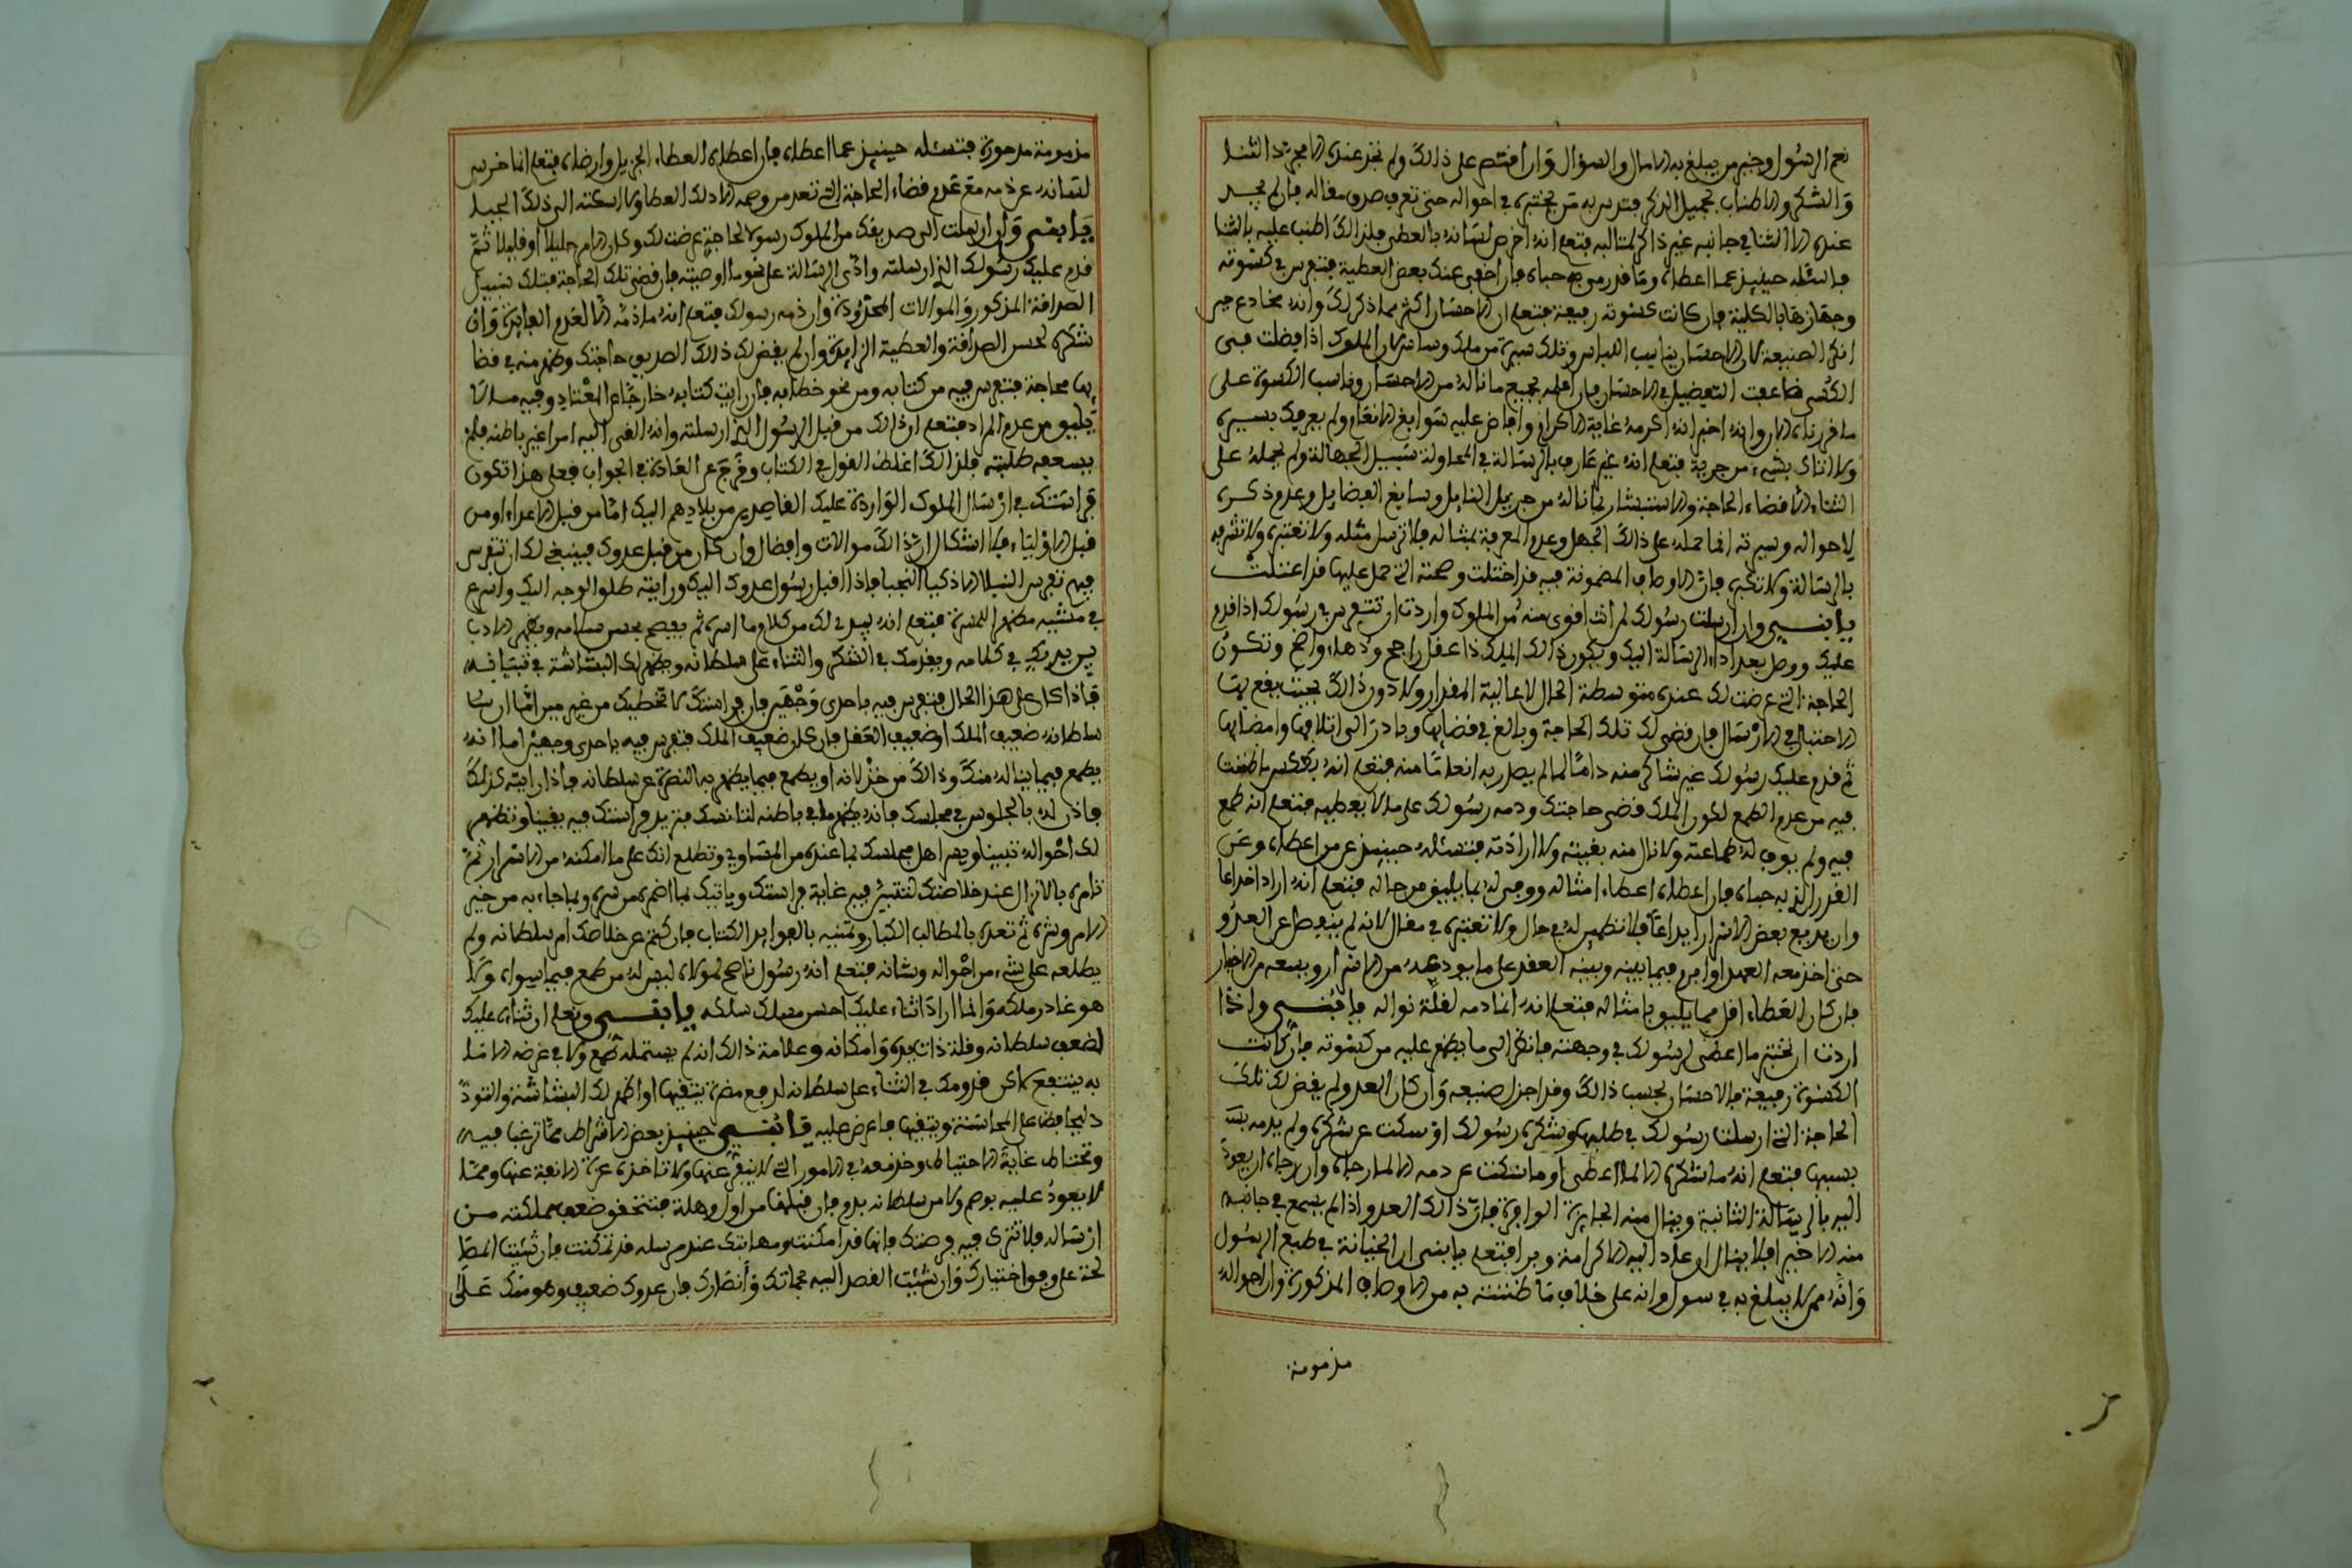 نعم الرسول وخبر من يبلغ به الامال والسؤال وان اقتصر على ذالك ولم تجد عنده الا مجرد الثنا
والشكر والاطناب بجميل الذكر فترس به من تختبره في احواله حتى تعرف صدق مقاله فان لم تجد
عنده الا الثنا في جانبه غير ذاكر لمثالبه فتعلم انه اخرس لسانه بالعطى فلذالك اطنب عليه بالثنا
فاسئله حينيذ عما اعطاه وما قدر من به حباه فان اخفى عنك بعض العطية فتفرس في كسوته
وجهازها بالكلية فان كانت كسوته رفيعة فتعلم ان الاحسان اكثر مما ذكر لك وانه مخادع حين
انكر الصنيعة لان الاحسان يناسب اللباس وتلك سيرة من ملك وساس لان الملوك اذا فضلت في
الكسى ضاعفت التفضيل في الاحسان فان اعلمك بجميع ما ناله من الاحسان وناسب الكسوة على
ما قررناه الان وانه اخبر انه اكرمه غاية الاكرام وافاض عليه سوابغ الانعام ولم يعرفك بسيره
ولا اتاك بشيء من خبره فتعلم انه غير عارف بالرسالة في المحاولة سبيل الجهالة ولم يحمله على
الثناء الا قضاء الحاجة والاستبشار بما ناله من جزيل النايل وسايغ الفضايل وعدم ذكره
لاحواله وسيرته انما حمله على ذالك الجهل وعدم المعرفة بمثاله فلا ترسل مثله ولا تعتبره ولا تشرفه
بالرسالة ولا تكبره فان الاوصاف المضمونة فيه قد اختلت وصحته التي حمل عليها قد اعتلت
يابني وان ارسلت رسولك لمن انت اقوى منه من الملوك واردت ان تتفرس في رسولك اذا قدم
عليك ووصل بعد اداء الرسالة اليك ويكون ذالك الملك ذا عقل راجح ودهاء واضح وتكون
الحاجة التي عرضت لك عنده متوسطة الحال لا عالية المقدار ولا دون ذالك بحيث يقع بها
الاحتفال في الارسال فان قضى لك تلك الحاجة وبالغ في قضايها وبادر الى اتلافها وامضايها
ثم قدم عليك رسولك غير شاكر منه داما لما لم يصل به انعاما منه فتعلم انه بعكس ما ظننت
فيه من عدم الطمع لكون الملك قضى حاجتك وذمه رسولك على ما لا يعطيه فتعلم انه طمع
فيه ولم يوف له طماعته ولا نال منه بغيته ولا ارادته فتسئله حينيذ عن من اعطاه وعن
القدر الذي به حباه فان اعطاه اعطاء امثاله ووجه له بما يليق من حاله فتعلم انه اراد اخداعا
وان يدفع بعض الاشرار ايداعا فلا تظهر له في حال ولا تعتبره في مقال لانه لم ينفصل عن العدو
حتى اخذ معه العهد او ابرم فيما بينه وبينه العقد على ما يودعه من الاسرار ويسعه من الاخبار
فان كان العطاء اقل مما يليق بامثاله فتعلم انه انما ذمه لقلة نواله يابني واذا
اردت ان تختبر ما اعطى لرسولك في وجهته فانظر الى ما يظهر عليه من كسوته فان كانت
الكسوة رفيعة فالاحسان بحسب ذالك وقد اجزل صنيعه وان كان العدو لم يقض لك تلك
الحاجة التي ارسلت رسولك في طلبها وشكره رسولك او سكت عن شكره ولم يذمه بسـ
بسببها فتعلم انه ما شكره الا لما اعطى او ما سكت عن ذمه الا لما رجاه وان رجاه ان يعود
اليه بالرسالة الثانية وينال منه الجايزة الوافرة فان ذالك العدو اذا لم يسمع في جانبه
منه الا خيرا فلا ينال ان عاد اليه الا كرامة وبرا فتعلم يابني ان الخيانة في طبع الرسول
وانه ممن لا يبلغ به في سول وانه على خلاف ما ظننته به من الاوصاف المذكورة وان احواله
مذمومة
مذمومة مدحورة فتسئله حينيذ عما اعطاه فان اعطاه العطاء الجزيل وارضاه فتعلم انما خرس
لسانه عن ذمه مع عدم قضاء الحاجة التي تعد من وصمه الا ذلك العطا ولا اسكته الى ذلك الجيد
يابني وان ارسلت الى صديقك من الملوك رسولا لحاجة عرضت لك وكان الامر جليلا او قليلا ثم
قدم عليك رسولك الذي ارسلته وادى الرسالة على نحو ما اوصيته فان قضى تلك الحاجة فتلك سبيل
الصداقة المذكور والموالات المحمودة وان ذمه رسولك فتعلم انه ما ذمه الا لعدم الفايدة وان
شكره لحسن الصداقة والعطية الزايدة وان لم يقض لك ذالك الصديق حاجتك وطهر منه في قضا
بها محاجة فتفرس فيه من كتابه ومن نحو خطابه فان رايت كتابه خارجا عن المعتاد وفيه ما لا
يليق من عدم المراد فتعلم ان ذالك من قبل الرسول الذي ارسلته وانه القى اليه امرا غير باطنه فلم
يسعه طلبته فلذالك اغلظ القول في الكتاب وخرج عن العادة في الجواب فعلى هذا تكون
فراستك في ارسال الملوك الواردة عليك القاصدين من بلادهم اليك اما من قبل الاعداء او من
قبل الاولياء فلا اشكال ان ذالك موالات وافضال وان كان من قبل عدوك فينبغي لك ان تتفرس
فيهم تفرس النبلا الاذكيا النجبا فاذا اقبل رسول عدوك اليك ورايته طلق الوجه اليك واسرع
في مشيه مظهرا للمسرة فتعلم انه يبدي لك من كلامه ما اسره ثم يفصح بحسن سلامه ويظهر الادب
يريد بك في كلامه ويقدمك في الشكر والثناء على سلطانه ويظهر لك البشاشة في تبيانه
فاذا كان على هذا الحال فتفرس فيه باحدى وجهين فان فراستك لا تخطيك من غير مين اما ان يكون
سلطانه ضعيف الملك او ضعيف العقل فان كان ضعيف الملك فتفرس فيه باحدى وجهين اما انه
يطمع فيما يناله منك وذالك من خذلانه او يطمع فيما يظهر به النصرة عن سلطانه فاذا رايته كذلك
فاذن له بالجلوس في مجلسك فانه يظهر ما في باطنه لتانسك فتزيد فراستك فيه يقينا وتظهر
لك احواله تبيينا ويخبر اهل مجلسك بما عنده من المساوي وتطلع انك على ما امكنه من الاسرار ثم
تامره بالانزال عند خلاصتك لتتبين فيه غاية فراستك وياتيك بما اضمره من سره وبما جاء به من خير
الامر وشره ثم تعده بالمطالب الكبار وتمنيه بالفوايد الكثار فان كتم عن خلاصك امر سلطانه ولم
يطلعه على شيء من احواله وشانه فتعلم انه رسول ناصح لمولاه ليس له من طمع فيما سواه ولا
هو غادر ملكه وانما اراد اثناء عليك احسن مسلك سلكه يابني وتعلم ان ثناءه عليك
لضعف سلطانه وقلة ذات يده وامكانه وعلامة ذالك انه لم يستمله طمع ولا في عرضه الا ما
به ينتفع لاكن قدومك في الثناء على سلطانه لدفع مضرة يتقيها او اظهر لك البشاشة والتود
د ليحافظ على المحاسنة ويتقيها فاعرض عليه يابني حينيذ بعض الاشراط مما ترغبا فيه
وتحتاط غاية الاحتياط وخذ معه في الامور التي لا ينبغى عنها ولا تاخذه عزة الانفة عنها ومما
لا يعود عليه بوصم ولا من سلطانه بذم فان قبلها من اول وهلة فتتحقق ضعف مملكته من
ارساله فلا تترك فيه فرصتك فانها قد امكنت ومهابتك عند مرسله قد تمكنت فان شئت المصا
لحة على وفق اختيارك وان شئت القصد اليه بحماتك وانصارك فان عدوك ضعيف وهو منك على